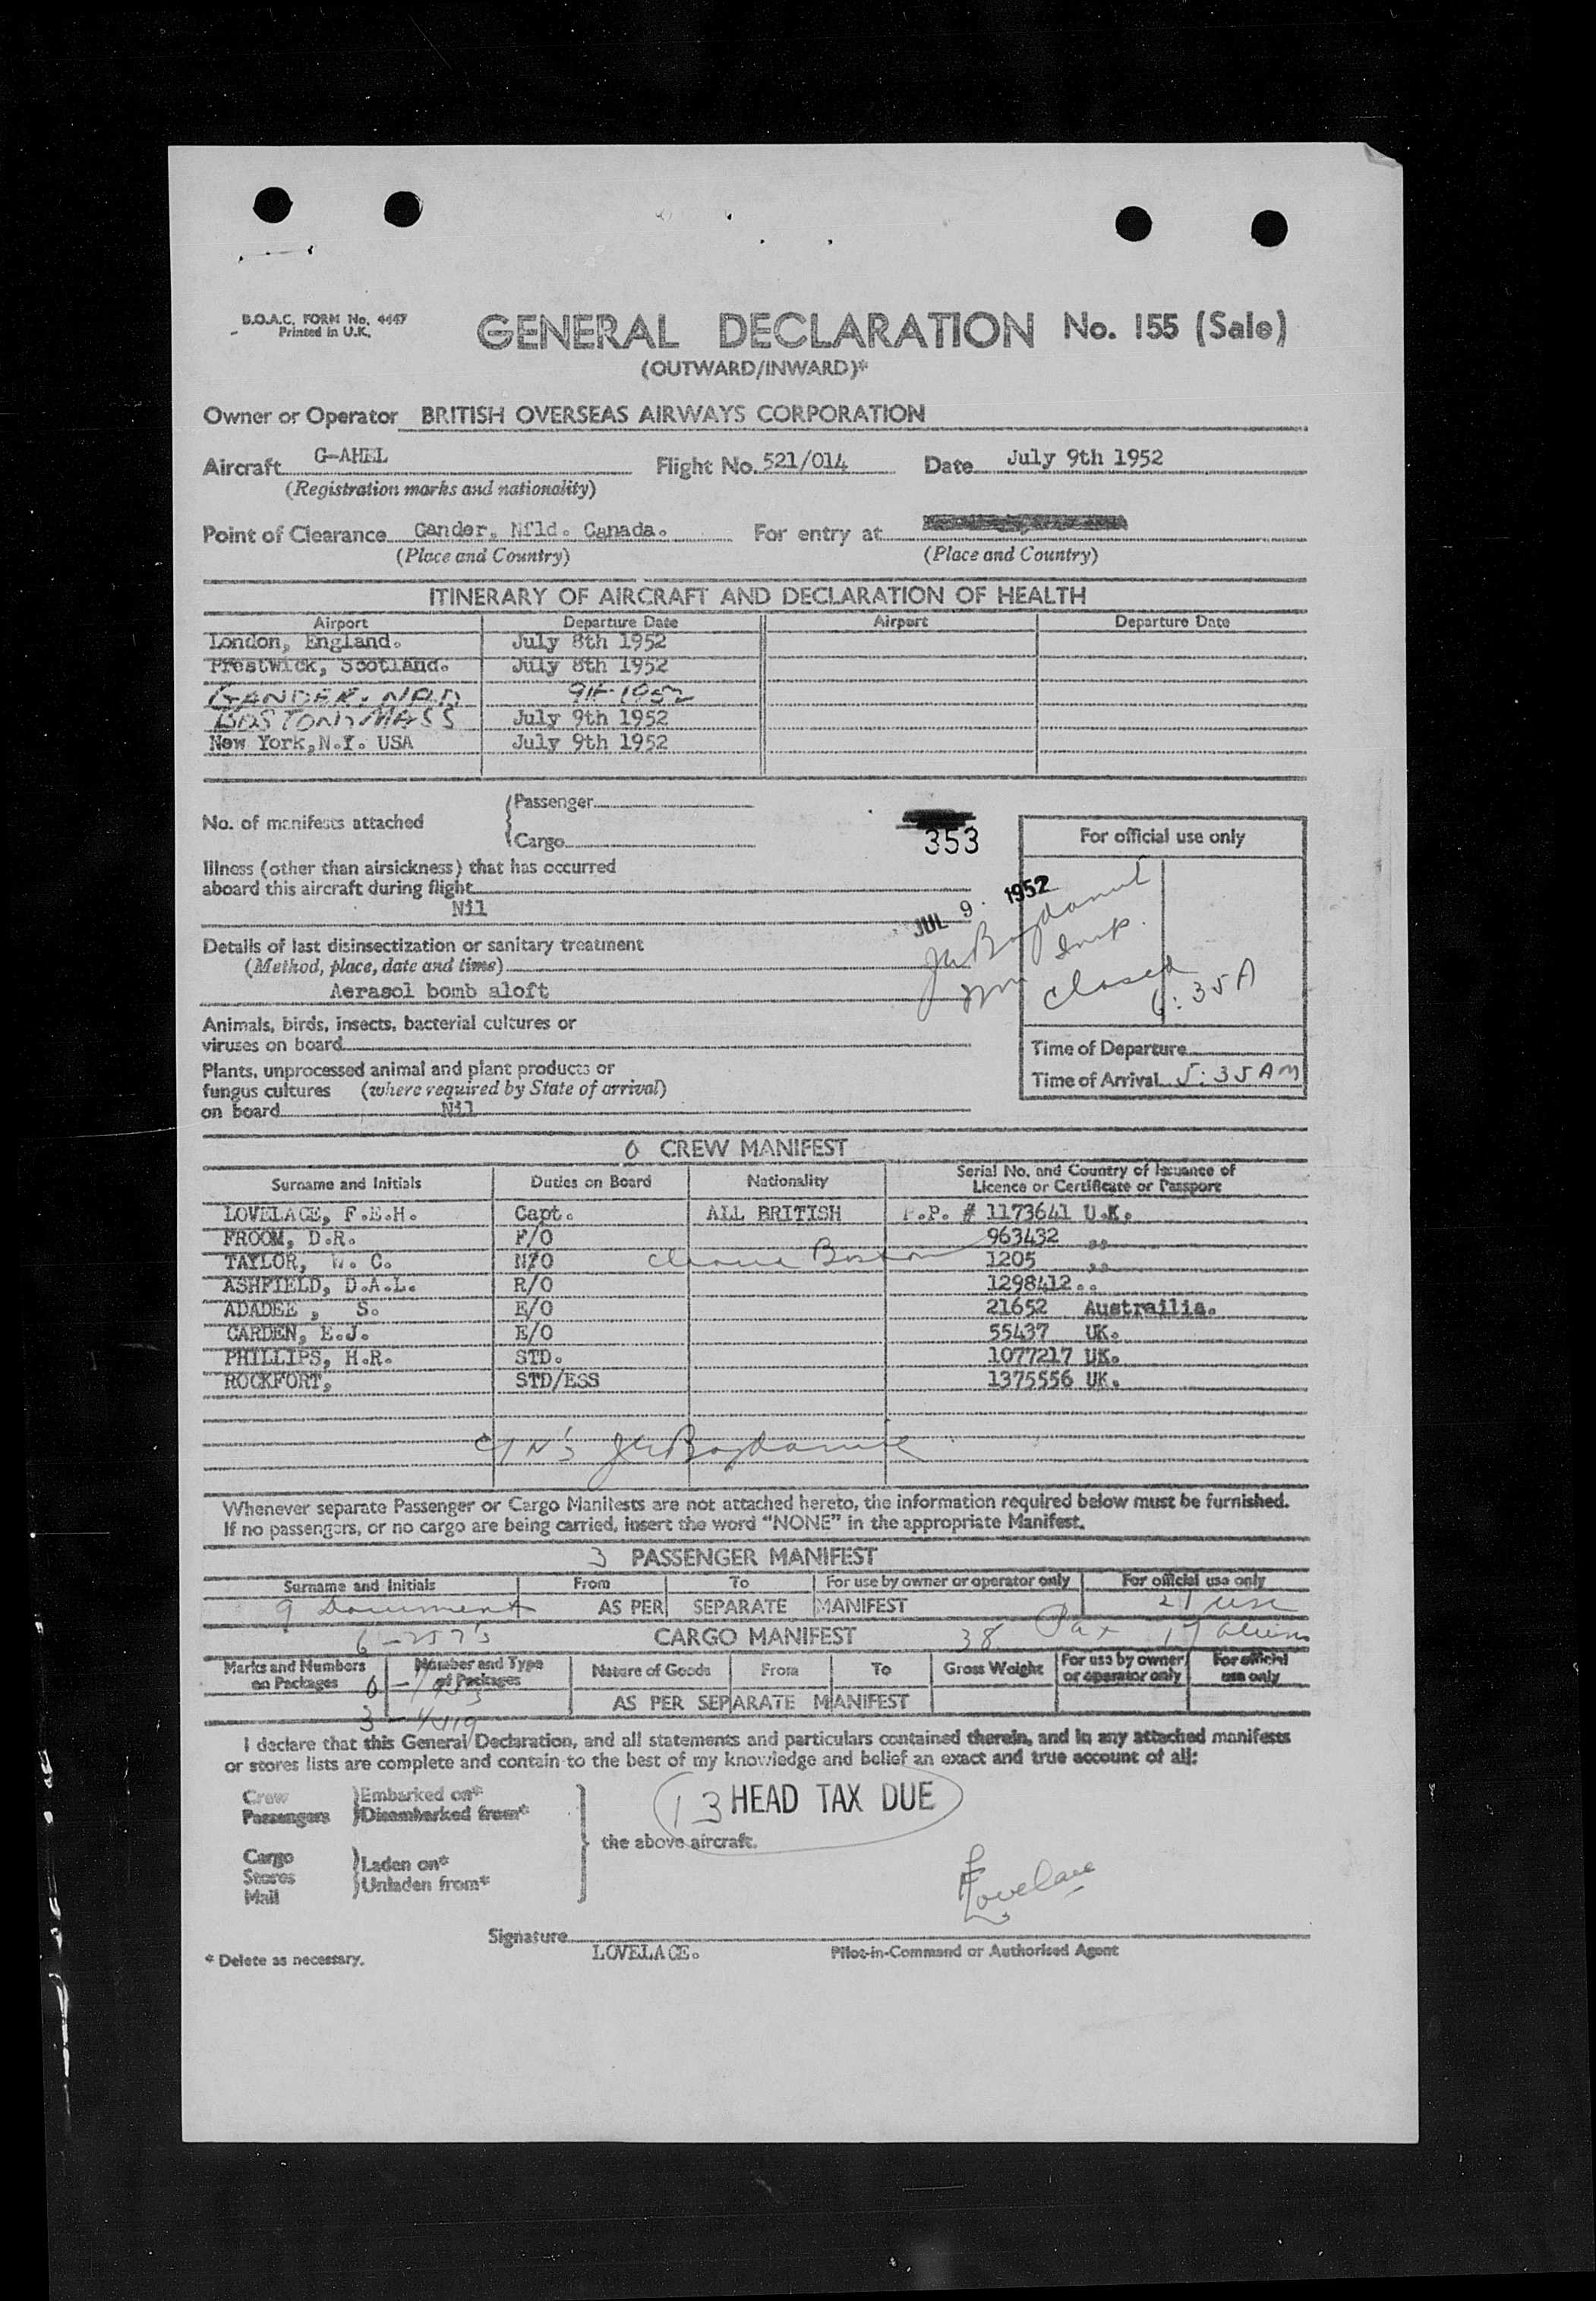 B.O.A.C. FORM No. 4447
Printed in U.K.
GENERAL DECLARATION No. 155 (Sale)
(OUTWARD/INWARD)*
Owner or Operator BRITISH OVERSEAS AIRWAYS CORPORATION
Aircraft G-AHEL Flight No. 521/014 Date July 9th 1952
(Registration marks and nationality)
Point of Clearance Gander, Nfld. Canada. For entry at
(Place and Country) (Place and Country)
ITINERARY OF AIRCRAFT AND DECLARATION OF HEALTH
Airport Departure Date Airport Departure Date
London, England. July 8th 1952
Prestwick, Scotland. July 8th 1952
GANDER. 1952
BOSTON MASS July 9th 1952
New York, N.Y. USA July 9th 1952
No. of manifests attached
Passenger
Cargo
353
For official use only
Illness (other than airsickness) that has occurred
aboard this aircraft during flight
Nil
JUL 9 1952
Details of last disinsectization or sanitary treatment
(Method, place, date and time)
Aerasol bomb aloft
closed
6:35 A
Animals, birds, insects, bacterial cultures or
viruses on board
Time of Departure
Plants, unprocessed animal and plant products or
fungus cultures (where required by State of arrival)
on board Nil
Time of Arrival 5:35 AM
0 CREW MANIFEST
Surname and Initials Duties on Board Nationality Serial No. and Country of Issuance of
Licence or Certificate or Passport
LOVELACE, F.E.H. Capt. ALL BRITISH P.P. # 1173641 U.K.
FROOM, D.R. F/O 963432 ,,
TAYLOR, W. C. N/O 1205 ,,
ASHFIELD, D.A.L. R/O 1298412..
ADADEE , S. E/O 21652 Austrailia.
CARDEN, E.J. E/O 55437 UK.
PHILLIPS, H.R. STD. 1077217 UK.
ROCKFORT, STD/ESS 1375556 UK.
Whenever separate Passenger or Cargo Manifests are not attached hereto, the information required below must be furnished.
If no passengers, or no cargo are being carried, insert the word "NONE" in the appropriate Manifest.
3 PASSENGER MANIFEST
Surname and Initials From To For use by owner or operator only For official use only
9 Documents AS PER SEPARATE MANIFEST 21 USC
6 - 257's CARGO MANIFEST 38 Pax 17 aliens
Marks and Numbers
on Packages
Number and Type
of Packages
Nature of Goods From To Gross Weight
For use by owner
or operator only
For official
use only
AS PER SEPARATE MANIFEST
I declare that this General Declaration, and all statements and particulars contained therein, and in any attached manifests
or stores lists are complete and contain to the best of my knowledge and belief an exact and true account of all:
Crew
Passengers
Embarked on*
Disembarked from*
13 HEAD TAX DUE
the above aircraft.
Cargo
Stores
Mail
Laden on*
Unladen from*
F Lovelace
Signature
LOVELACE. Pilot-in-Command or Authorised Agent
* Delete as necessary.